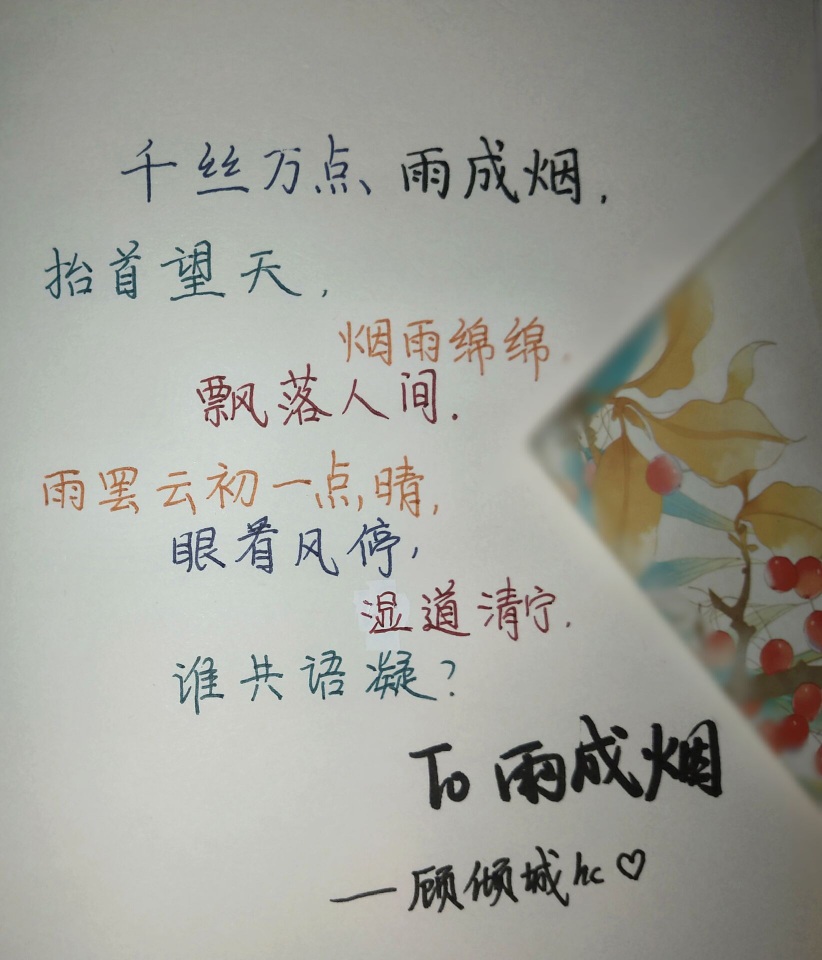 千丝万点、雨成烟,
抬首望天,
烟雨绵绵.
飘落人间.
雨罢云初一点,晴,
眼看风停,
湿道清宁.
谁共语凝?
To 雨成烟
—顾倾城hc♡